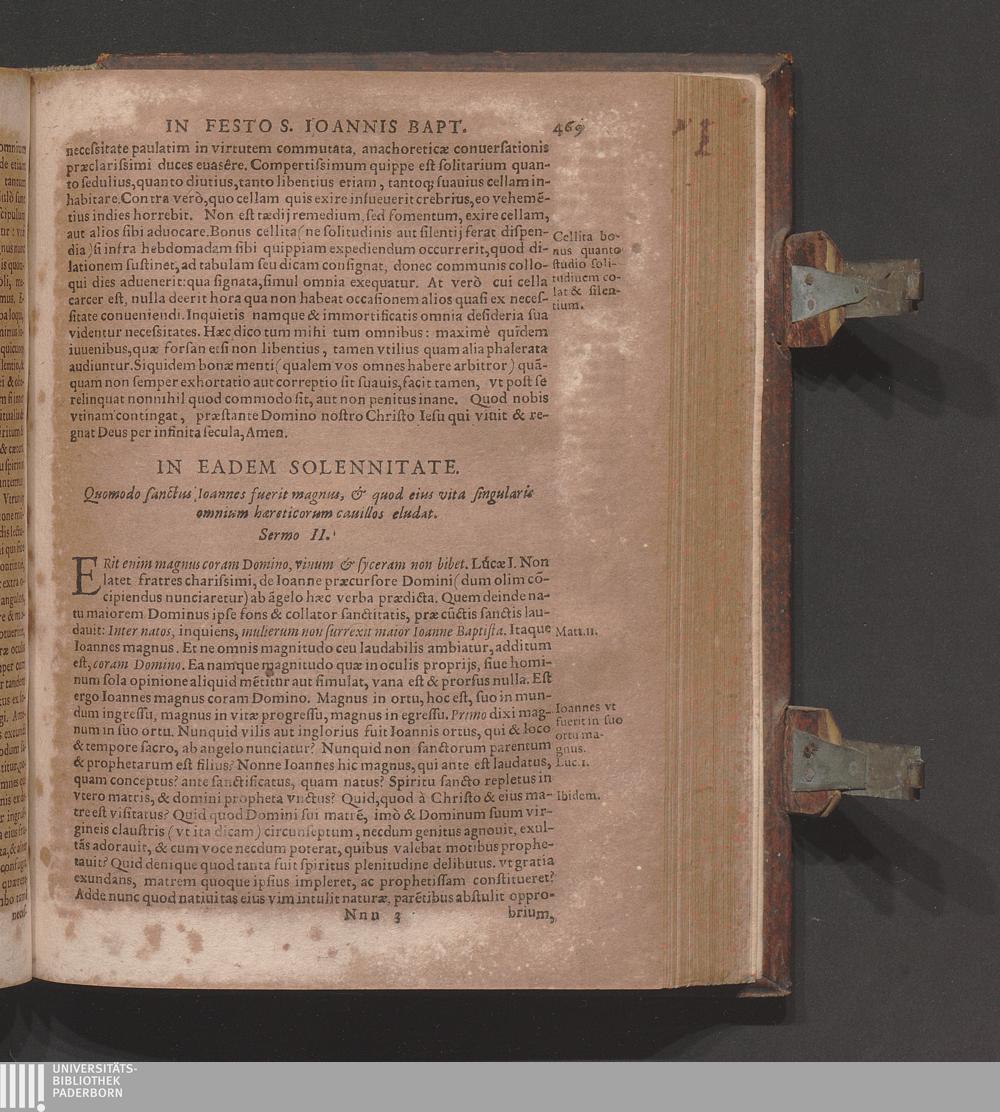 IN FESTO S. IOANNIS BAPT. 469
necessitate paulatim in virtutem commutata, anachoreticæ conuersationis
præclarissimi duces euasêre. Compertissimum quippe est solitarium quan-
to sedulius, quanto diutius, tanto libentius etiam, tantoq; suauius cellam in-
habitare. Contra verò, quo cellam quis exire insueuerit crebrius, eo vehemē-
tius indies horrebit. Non est tædij remedium, sed fomentum, exire cellam,
aut alios sibi aduocare. Bonus cellita (ne solitudinis aut silentij ferat dispen-
dia) si infra hebdomadam sibi quippiam expediendum occurrerit, quod di-
lationem sustinet, ad tabulam seu dicam consignat, donec communis collo-
qui dies aduenerit: qua signata, simul omnia exequatur. At verò cui cella
carcer est, nulla deerit hora qua non habeat occasionem alios quasi ex neces-
sitate conueniendi. Inquietis namque & immortificatis omnia desideria sua
videntur necessitates. Hæc dico tum mihi tum omnibus: maximè quidem
iuuenibus, quæ forsan etsi non libentius, tamen vtilius quam alia phalerata
audiuntur. Siquidem bonæ menti (qualem vos omnes habere arbitror) quā-
quam non semper exhortatio aut correptio sit suauis, facit tamen, vt post se
relinquat nonnihil quod commodo sit, aut non penitus inane. Quod nobis
vtinam contingat, præstante Domino nostro Christo Iesu qui viuit & re-
gnat Deus per infinita secula, Amen.
Cellita bo-
nus quanto
studio soli-
tudinem co-
lat & silen-
tium.
IN EADEM SOLENNITATE.
Quomodo sanctus Ioannes fuerit magnus, & quod eius vita singularis
omnium hæreticorum cauillos eludat.
Sermo II.
ERit enim magnus coram Domino, vinum & syceram non bibet. Lucæ I. Non
latet fratres charissimi, de Ioanne præcursore Domini (dum olim cō-
cipiendus nunciaretur) ab āgelo hæc verba prædicta. Quem deinde na-
tu maiorem Dominus ipse fons & collator sanctitatis, præ cūctis sanctis lau-
dauit: Inter natos, inquiens, mulierum non surrexit maior Ioanne Baptista. Itaque
Ioannes magnus. Et ne omnis magnitudo ceu laudabilis ambiatur, additum
est, coram Domino. Ea namque magnitudo quæ in oculis proprijs, siue homi-
num sola opinione aliquid mētitur aut simulat, vana est & prorsus nulla. Est
ergo Ioannes magnus coram Domino. Magnus in ortu, hoc est, suo in mun-
dum ingressu, magnus in vitæ progressu, magnus in egressu. Primo dixi mag-
num in suo ortu. Nunquid vilis aut inglorius fuit Ioannis ortus, qui & loco
& tempore sacro, ab angelo nunciatur? Nunquid non sanctorum parentum
& prophetarum est filius? Nonne Ioannes hic magnus, qui ante est laudatus,
quam conceptus? ante sanctificatus, quam natus? Spiritu sancto repletus in
vtero matris, & domini propheta vnctus? Quid, quod à Christo & eius ma-
tre est visitatus? Quid quod Domini sui matrē, imò & Dominum suum vir-
gineis claustris (vt ita dicam) circunseptum, necdum genitus agnouit, exul-
tās adorauit, & cum voce necdum poterat, quibus valebat motibus prophe-
tauit? Quid denique quod tanta fuit spiritus plenitudine delibutus, vt gratia
exundans, matrem quoque ipsius impleret, ac prophetissam constitueret?
Adde nunc quod natiuitas eius vim intulit naturæ, parētibus abstulit oppro-
Matt. 11.
Ioannes vt
fuerit in suo
ortu ma-
gnus.
Luc. 1.
Ibidem.
Nnn 3 brium,
UNIVERSITÄTS-
BIBLIOTHEK
PADERBORN